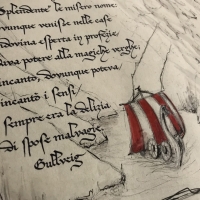 Splendente" le misero nome;
ovunque venisse nelle case
Indovina esperta in profezie,
dava potere alla magiche verghe;
incanto, dovunque poteva
incantò i sensi
sempre era la delizia
di spose malvagie.
Gullveig